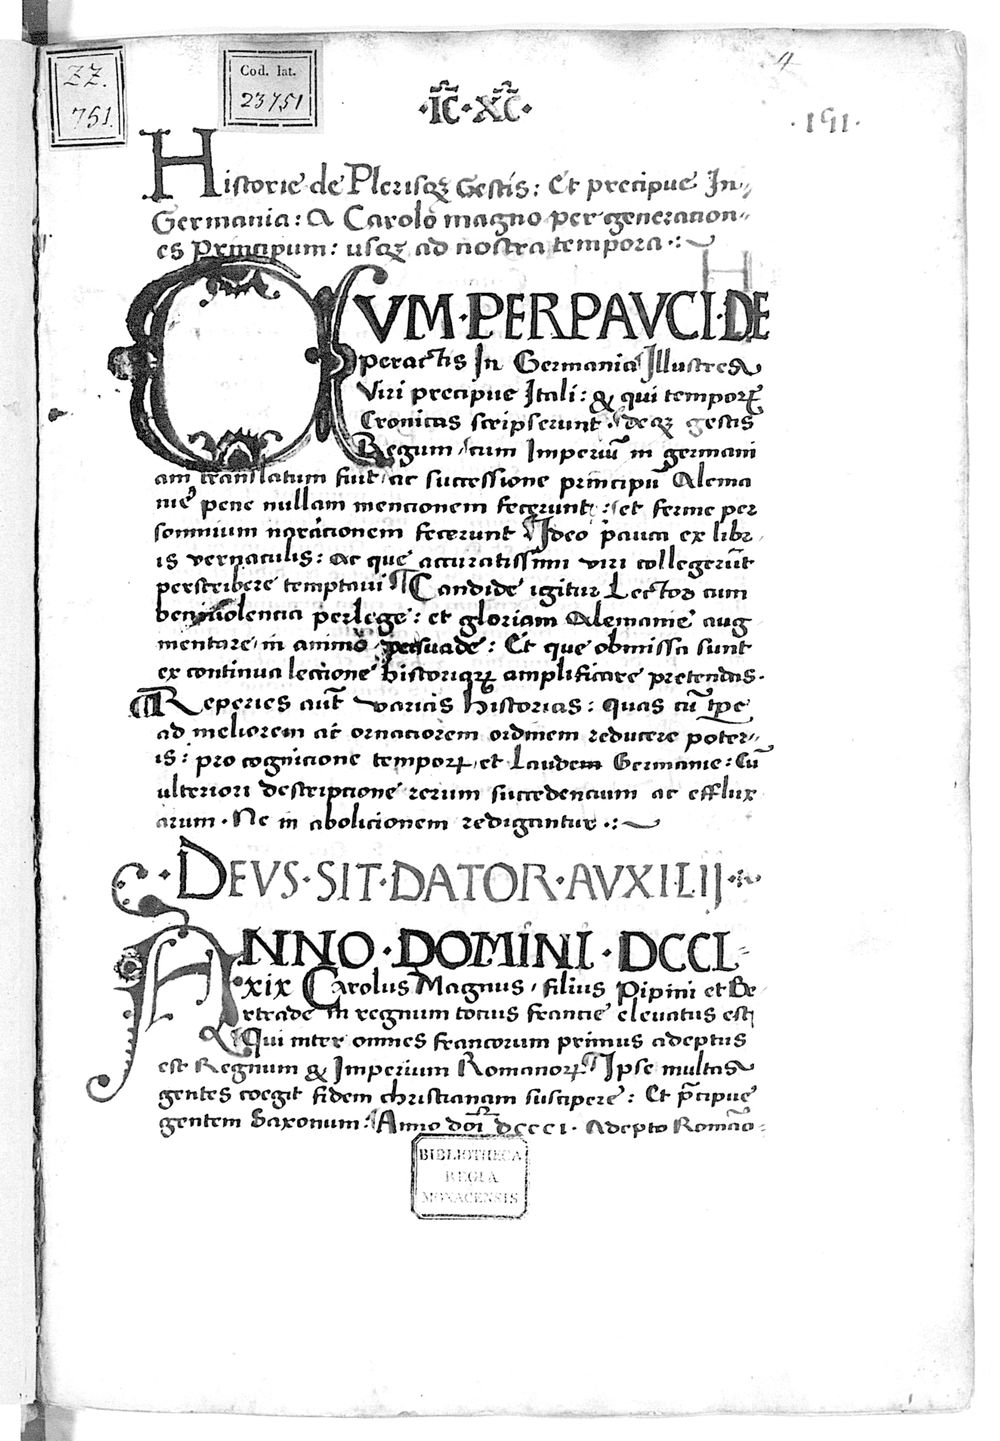 4
ZZ. 751.
Cod. lat. 23751
·IC̃·XC̃·
Historie de Plerisqꝫ Gestis: Et precipue In-
Germania: A Carolo magno per generacion-
es Principum: usqꝫ ad nostra tempora·:~
CVM·PERPAVCI·DE
peractis In Germania Illustres
Viri precipue Itali: & qui temporꝝ
Cronicas scripserunt· deqꝫ gestis
Regum cum Imperiū in germani
am translatum fuit, ac successione principū Alema
nie pene nullam mencionem fecerunt: et ferme per
somnium narracionem fecerunt ¶Ideo pauca ex libr-
is vernaculis: ac que accuratissimi viri collegerūt
perscribere temptaui ¶Candide igitur Lector cum
beniuolentia perlege: et gloriam Alemanie aug
mentare in animo persuade: Et que obmissa sunt
ex continua leccione historiarꝝ amplificare pretendas.
¶Reperies aūt varias historias: quas cū tp̄e
ad meliorem ac ornaciorem ordinem reducere poter-
is: pro cognicione temporꝝ, et Laudem Germanie: Cū
ulteriori descripcione rerum succedencium ac efflux
arum· Ne in abolicionem redigantur·:~
·DEVS·SIT·DATOR·AVXILIJ·
ANNO·DOMINI·DCCL-
xix Carolus Magnus, filius Pipini et Be-
rtrade in regnum tocius francie eleuatus est
Qui inter omnes francorum primus adeptus
est Regnum & Imperium Romanorꝝ ¶Ipse multas
gentes coegit fidem christianam suscipere: Et p̄cipue
gentem Saxonum: Anno doī dccci· Adepto Romāo-
BIBLIOTHECA
REGIA
MONACENSIS